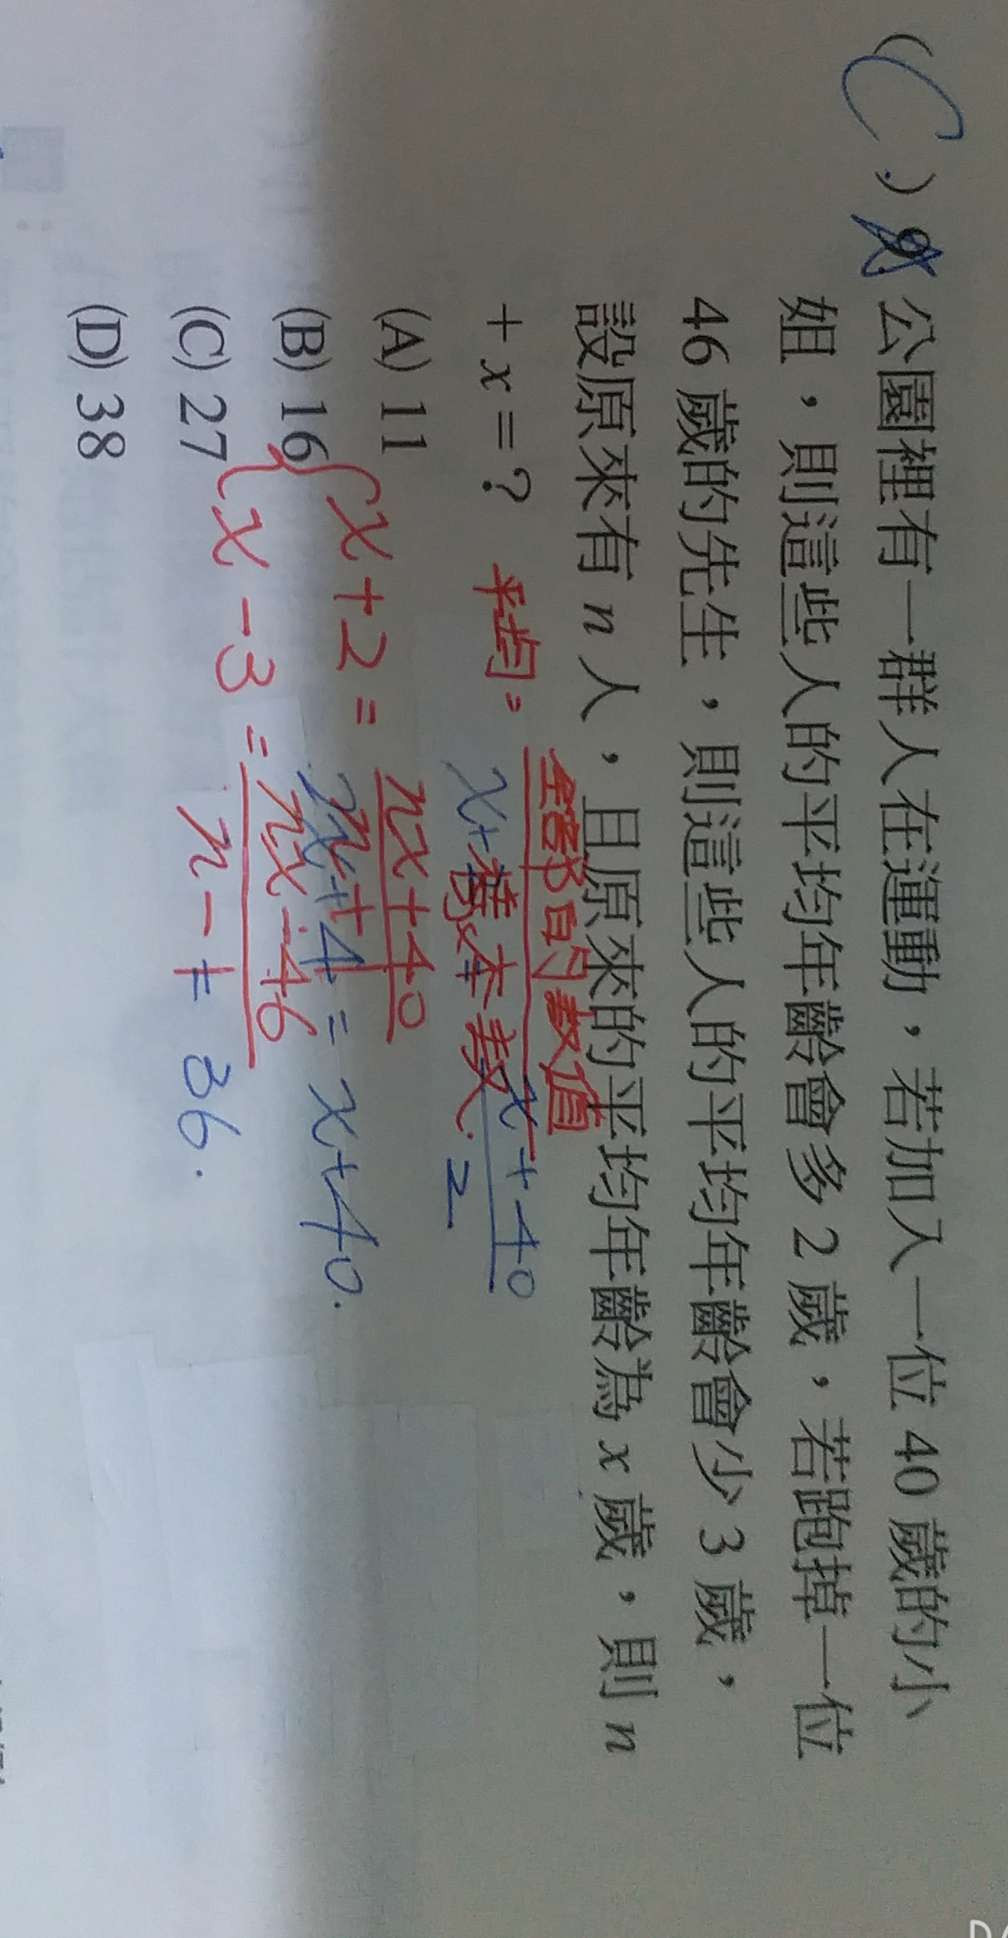 ( C ) 9. 公園裡有一群人在運動，若加入一位 40 歲的小
姐，則這些人的平均年齡會多 2 歲，若跑掉一位
46 歲的先生，則這些人的平均年齡會少 3 歲，
設原來有 n 人，且原來的平均年齡為 x 歲，則 n
+ x = ?
平均 =
全部的數值
樣本數
x + 40
2
(A) 11
x + 2 =
nx + 40
n + 1
(B) 16
= x + 40.
(C) 27
x - 3 =
nx - 46
n - 1
= 36.
(D) 38